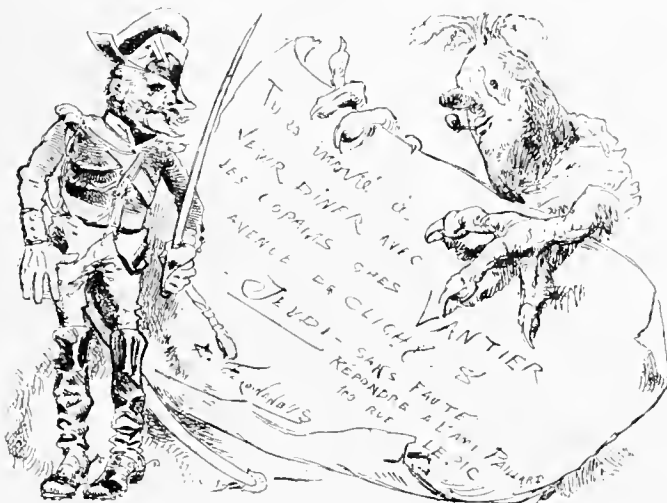 Tu es invité à
VENIR DÎNER AVEC
LES COPAINS CHES LANTIER
AVENUE DE CLICHY. 8
JEUDI - SANS FAUTE
RÉPONDRE A L'AMI
100 RUE LEPIC